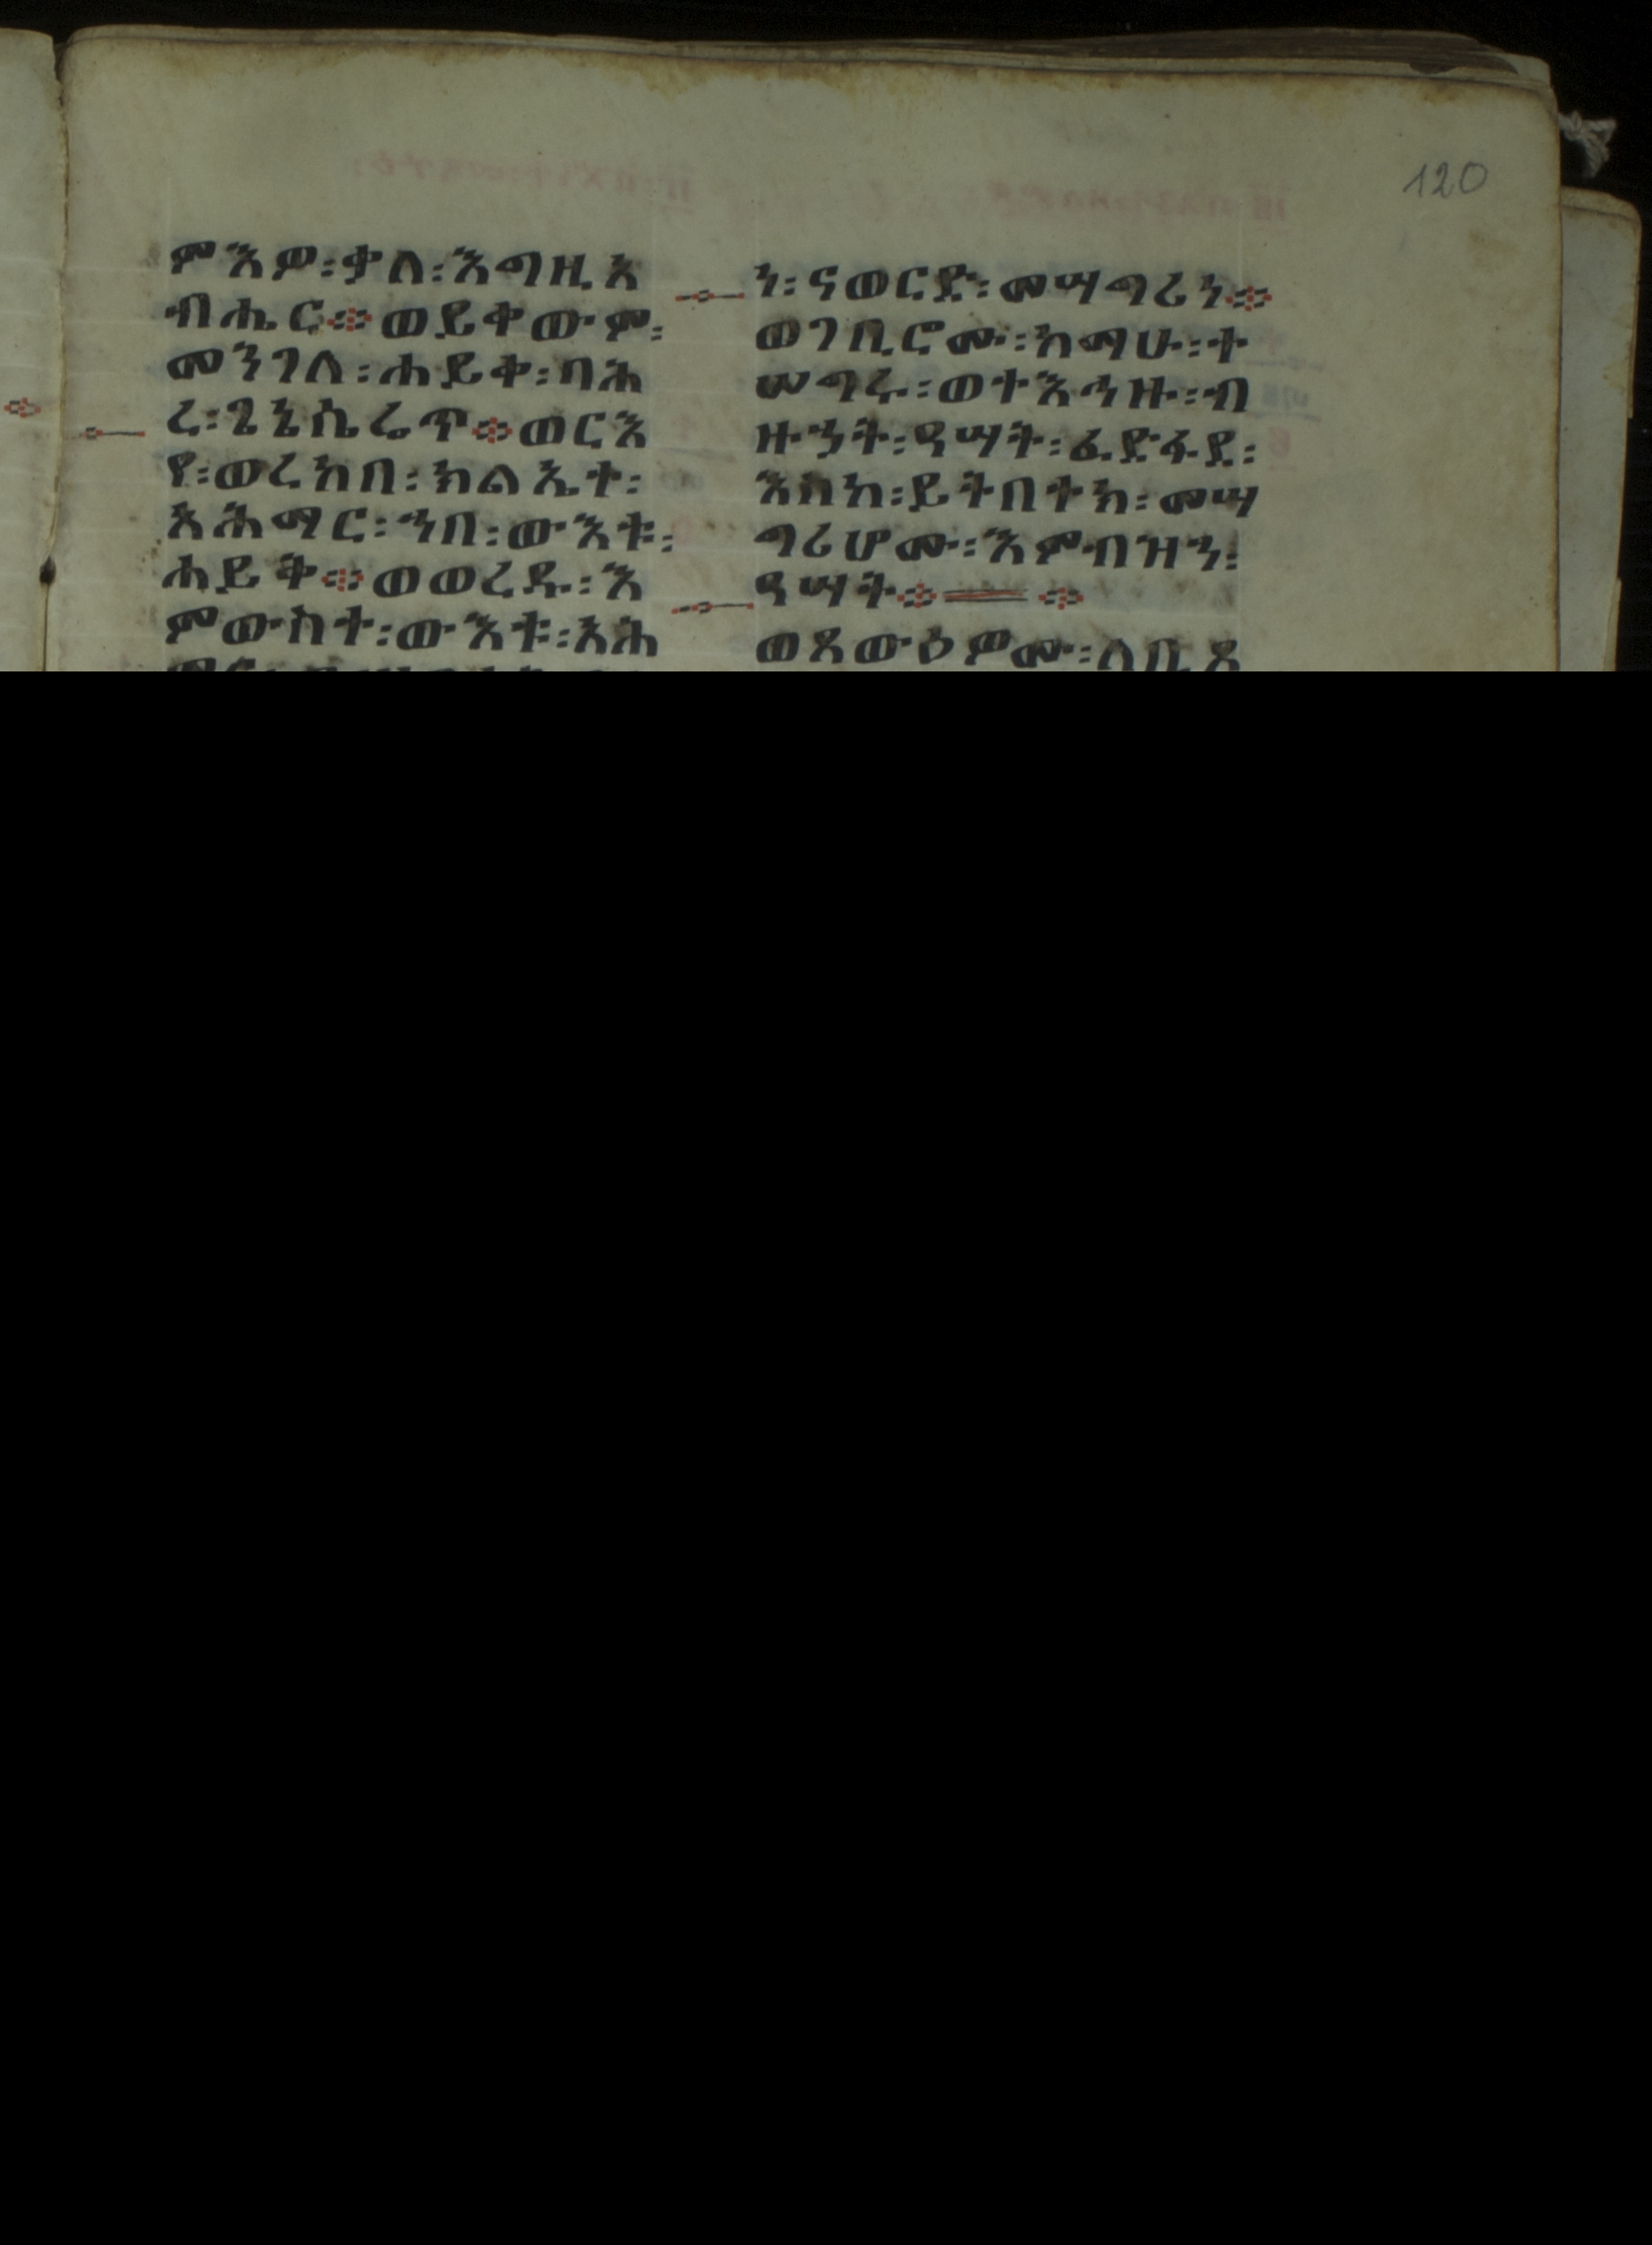 120
ምእዎ፡ቃለ፡እግዚአ
ብሔር፨ወይቀውም፡
መንገለ፡ሐይቀ፡ባሕ
ረ፡ጌኔሴሬጥ፨ወርእ
የ፡ወረከበ፡ክልኤተ፡
አሕማር፡ኀበ፡ውእቱ፡
ሐይቅ፨ወወረዱ፡እ
ምውስተ፡ውእቱ፡አሕ
ን፡ናወርድ፡መሣግሪነ፨
ወገቢሮሙ፡ከማሁ፡ተ
ሠግሩ፡ወተእኅዙ፡ብ
ዙኃት፡ዓሣት፡ፈድፋደ፡
እስከ፡ይትበተክ፡መሣ
ግሪሆሙ፡እምብዝኀ፡
ዓሣት፨ ፨
ወጸውዕዎሙ፡ለቢጾ